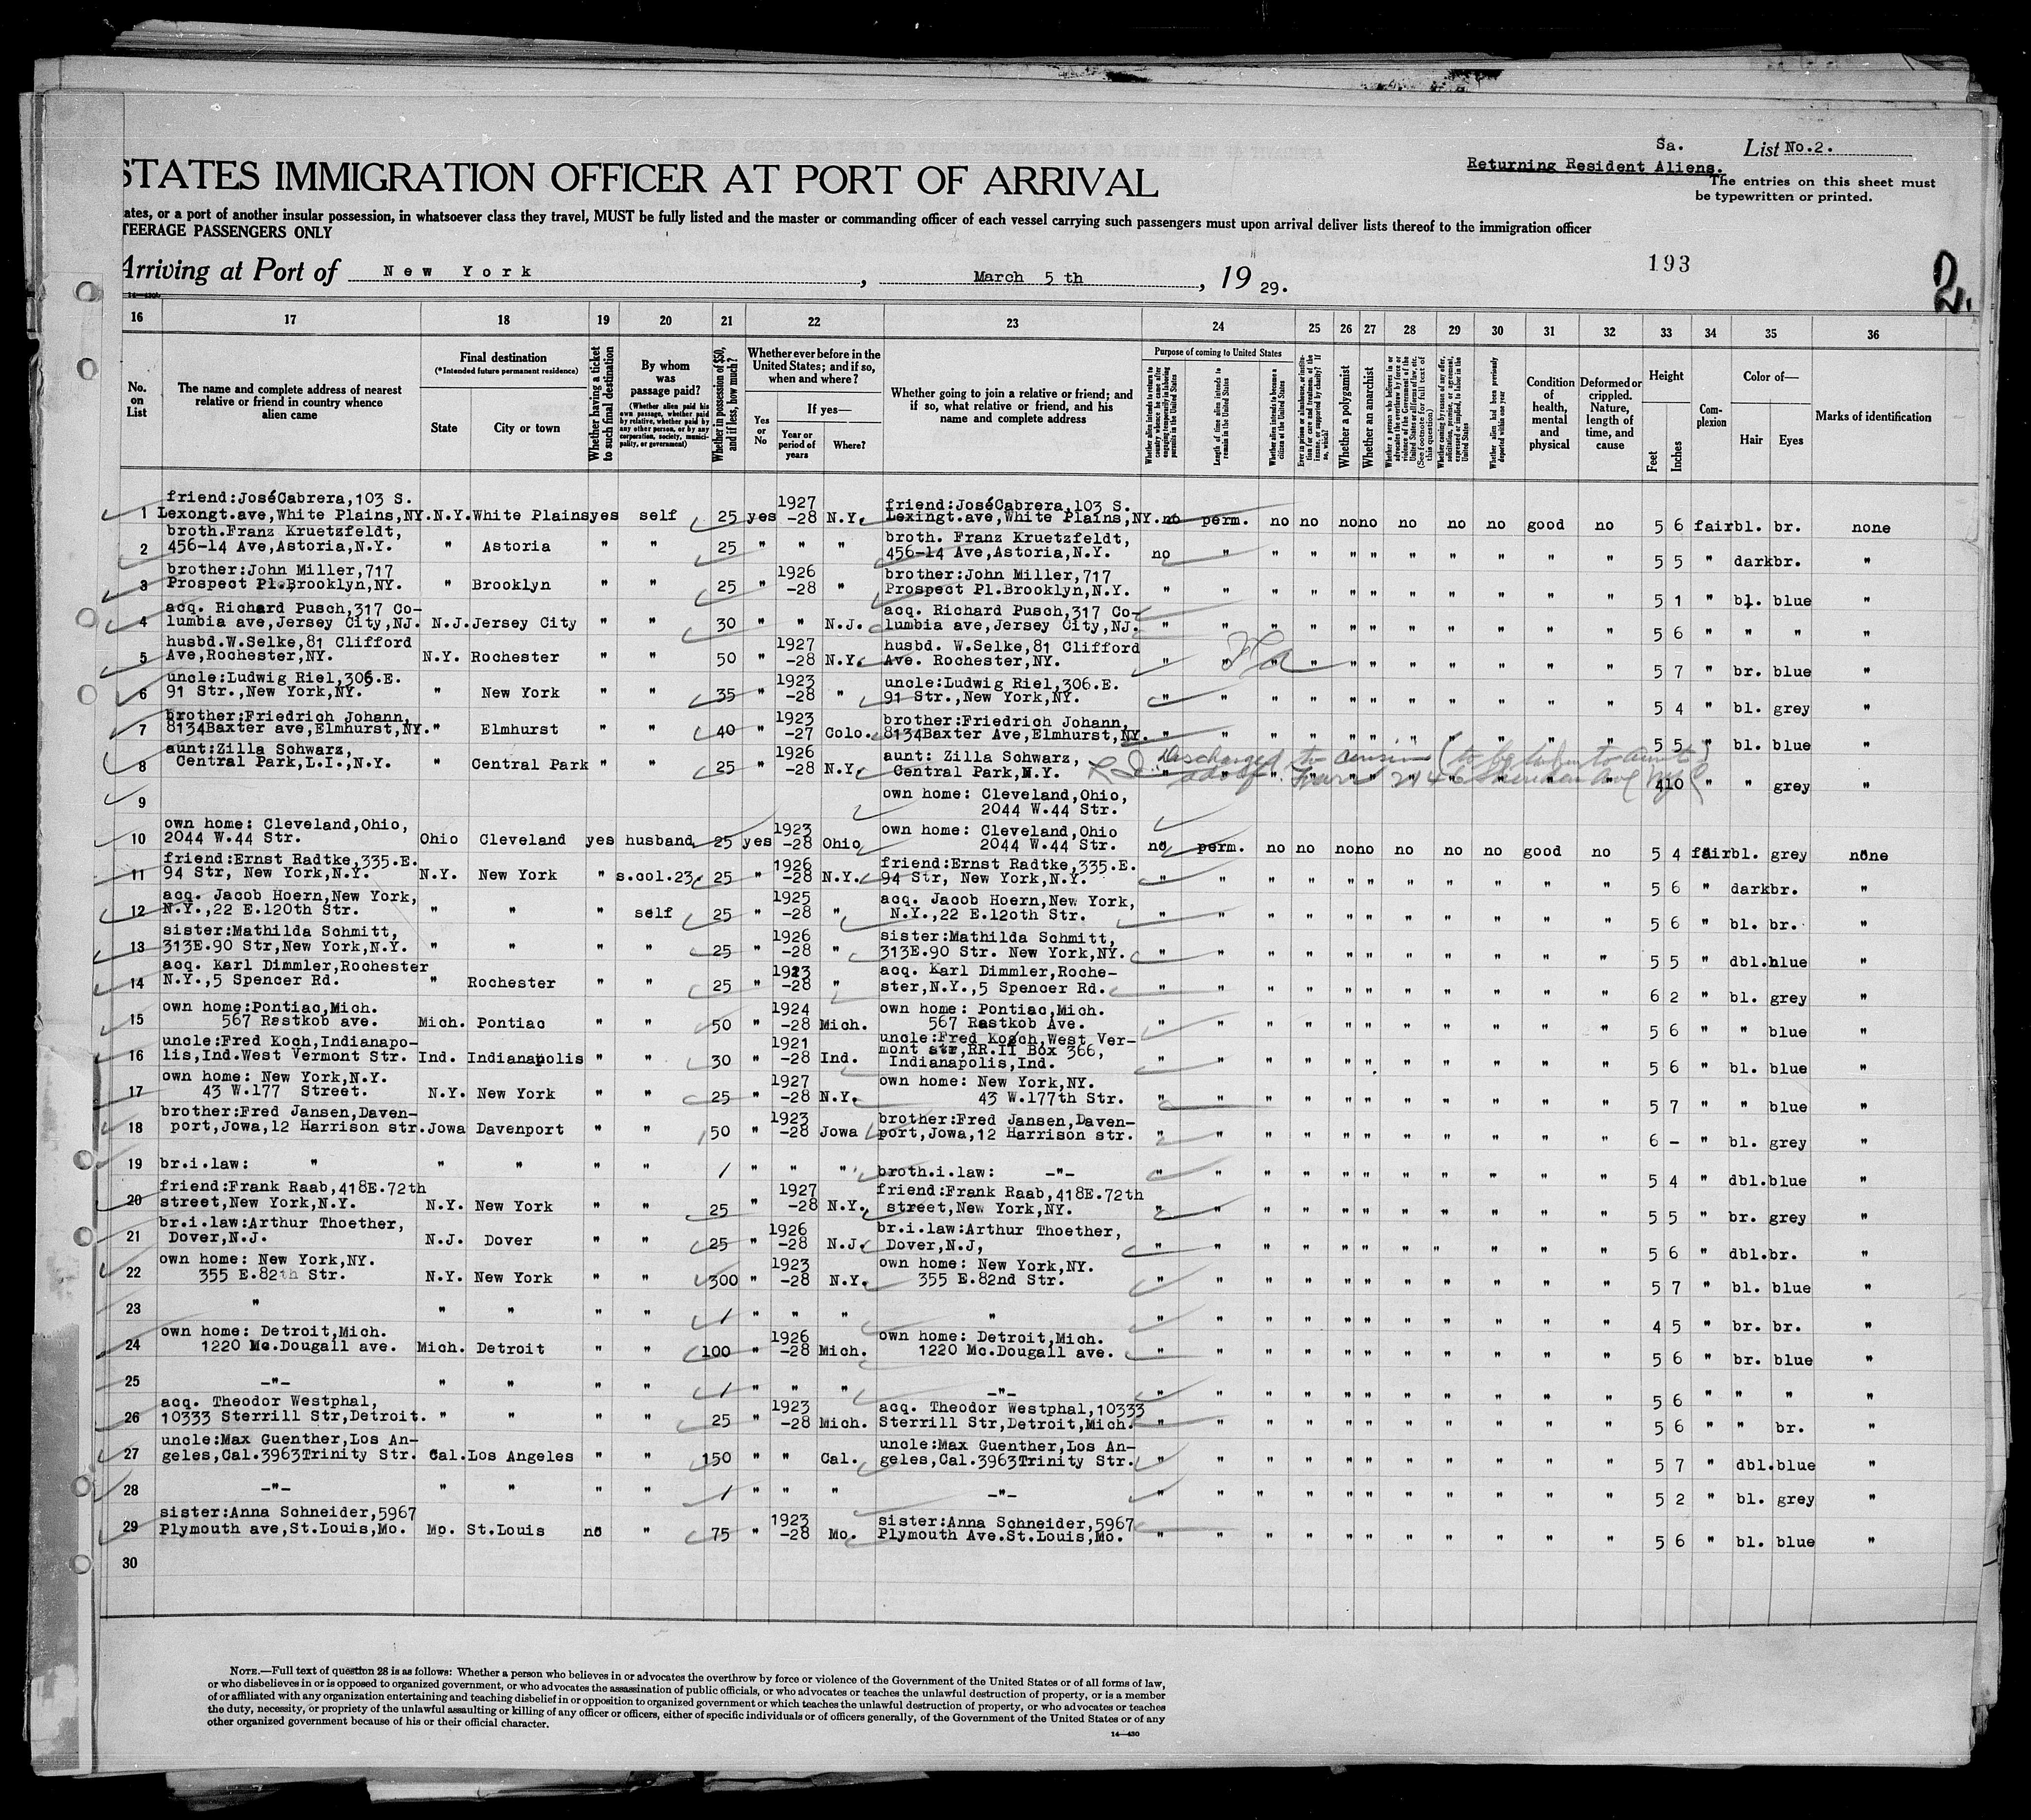 Sa. List No.2.
Returning Resident Aliens.
STATES IMMIGRATION OFFICER AT PORT OF ARRIVAL
The entries on this sheet must
be typewritten or printed.
ates, or a port of another insular possession, in whatsoever class they travel, MUST be fully listed and the master or commanding officer of each vessel carrying such passengers must upon arrival deliver lists thereof to the immigration officer
TEERAGE PASSENGERS ONLY
193
2.
Arriving at Port of New York, March 5 th, 19 29.
16 17 18 19 20 21 22 23 24 25 26 27 28 29 30 31 32 33 34 35 36
No. on List
The name and complete address of nearest relative or friend in country whence alien came
Final destination
(*Intended future permanent residence)
State City or town
Whether having a ticket to such final destination
By whom was passage paid?
(Whether alien paid his own passage, whether paid by relative, whether paid by any other person, or by any corporation, society, municipality, or government)
Whether in possession of $50, and if less, how much?
Whether ever before in the United States; and if so, when and where?
Yes or No
If yes—
Year or period of years
Where?
Whether going to join a relative or friend; and if so, what relative or friend, and his name and complete address
Purpose of coming to United States
Whether alien intends to return to country whence he came after engaging temporarily in laboring pursuits in the United States
Length of time alien intends to remain in the United States
Whether alien intends to become a citizen of the United States
Whether a polygamist
Whether an anarchist
Whether alien had been previously deported within one year
Condition of health, mental and physical
Deformed or crippled. Nature, length of time, and cause
Height
Feet Inches
Complexion
Color of—
Hair Eyes
Marks of identification
friend:José Cabrera,103 S. 1927 friend:José Cabrera,103 S.
1 Lexongt.ave,White Plains,NY. N.Y. White Plains yes self 25 yes -28 N.Y. Lexingt.ave,White Plains,NY. no perm. no no no no no no no good no 5 6 fair bl. br. none
broth.Franz Kruetzfeldt, broth. Franz Kruetzfeldt,
2 456-14 Ave,Astoria,N.Y. " Astoria " " 25 " " " 456-14 Ave,Astoria,N.Y. no " " " " " " " " " " 5 5 " dark br. "
brother:John Miller,717 1926 brother:John Miller,717
3 Prospect Pl.Brooklyn,NY. " Brooklyn " " 25 " -28 " Prospect Pl.Brooklyn,N.Y. " " " " " " " " " " " 5 1 " bl. blue "
acq. Richard Pusch,317 Co- acq. Richard Pusch,317 Co-
4 lumbia ave,Jersey City,NJ. N.J. Jersey City " " 30 " " N.J. lumbia ave,Jersey City,NJ. " " " " " " " " " " " 5 6 " " " "
husbd.W.Selke,81 Clifford 1927 husbd. W.Selke,81 Clifford
5 Ave,Rochester,NY. N.Y. Rochester " " 50 " -28 N.Y. Ave. Rochester,NY. " " " " " " " " " " " 5 7 " br. blue "
uncle:Ludwig Riel,306.E. 1923 uncle:Ludwig Riel,306.E.
6 91 Str.,New York,NY. " New York " " 35 " -28 " 91 Str.,New York,NY. " " " " " " " " " " " 5 4 " bl. grey "
brother:Friedrich Johann, 1923 brother:Friedrich Johann,
7 8134Baxter ave,Elmhurst,NY. " Elmhurst " " 40 " -27 Colo. 8134Baxter Ave,Elmhurst,NY. " " " " " " " " " " " 5 5 " bl. blue "
aunt:Zilla Schwarz, 1926 aunt: Zilla Schwarz, Discharged to cousin (to be taken to aunt)
8 Central Park,L.I.,N.Y. " Central Park " " 25 " -28 N.Y. Central Park,N.Y. " " " " " " " " " " " 4 10 " " grey "
9 own home: Cleveland,Ohio,
2044 W.44 Str.
own home: Cleveland,Ohio, 1923 own home: Cleveland,Ohio
10 2044 W.44 Str. Ohio Cleveland yes husband 25 yes -28 Ohio 2044 W.44 Str. no perm. no no no no no no no good no 5 4 fair bl. grey none
friend:Ernst Radtke,335.E. 1926 friend:Ernst Radtke,335.E.
11 94 Str, New York,N.Y. N.Y. New York " s.col.23. 25 " -28 N.Y. 94 Str, New York,N.Y. " " " " " " " " " " " 5 6 " dark br. "
acq. Jacob Hoern,New York, 1925 acq. Jacob Hoern,New York,
12 N.Y.,22 E.120th Str. " " " self 25 " -28 " N.Y.,22 E.120th Str. " " " " " " " " " " " 5 6 " bl. br. "
sister:Mathilda Schmitt, 1926 sister:Mathilda Schmitt,
13 313E.90 Str,New York,N.Y. " " " " 25 " -28 " 313E.90 Str. New York,NY. " " " " " " " " " " " 5 5 " dbl. blue "
acq. Karl Dimmler,Rochester 1923 acq. Karl Dimmler,Roche-
14 N.Y.,5 Spencer Rd. " Rochester " " 25 " -28 " ster,N.Y.,5 Spencer Rd. " " " " " " " " " " " 6 2 " bl. grey "
own home:Pontiac,Mich. 1924 own home: Pontiac,Mich.
15 567 Rastkob ave. Mich. Pontiac " " 50 " -28 Mich. 567 Rastkob Ave. " " " " " " " " " " " 5 6 " " blue "
uncle:Fred Koch,Indianapo- 1921 uncle:Fred Koch,West Ver-
mont str,RR.II Box 366,
16 lis,Ind.West Vermont Str. Ind. Indianapolis " " 30 " -28 Ind. Indianapolis,Ind. " " " " " " " " " " " 5 6 " bl. blue "
own home: New York,N.Y. 1927 own home: New York,NY.
17 43 W.177 Street. N.Y. New York " " 25 " -28 N.Y. 43 W.177th Str. " " " " " " " " " " " 5 7 " " blue "
brother:Fred Jansen,Daven- 1923 brother:Fred Jansen,Daven-
18 port,Jowa,12 Harrison str. Jowa Davenport " " 50 " -28 Jowa port,Jowa,12 Harrison str. " " " " " " " " " " " 6 - " bl. grey "
19 br.i.law: " " " " " / " " " broth.i.law: -"- " " " " " " " " " " " 5 4 " dbl. blue "
friend:Frank Raab,418E.72th 1927 friend:Frank Raab,418E.72th
20 street,New York,N.Y. N.Y. New York " " 25 " -28 N.Y. street,New York,NY. " " " " " " " " " " " 5 5 " br. grey "
br.i.law:Arthur Thoether, 1926 br.i.law:Arthur Thoether,
21 Dover,N.J. N.J. Dover " " 25 " -28 N.J. Dover,N.J, " " " " " " " " " " " 5 6 " dbl. br. "
own home: New York,NY. 1923 own home: New York,NY.
22 355 E.82th Str. N.Y. New York " " 300 " -28 N.Y. 355 E.82nd Str. " " " " " " " " " " " 5 7 " bl. blue "
23 " " " " " / " " " " " " " " " " " " " " " 4 5 " br. br. "
own home: Detroit,Mich. 1926 own home: Detroit,Mich.
24 1220 Mc.Dougall ave. Mich. Detroit " " 100 " -28 Mich. 1220 Mc.Dougall ave. " " " " " " " " " " " 5 6 " br. blue "
25 -"- " " " " / " " " -"- " " " " " " " " " " " 5 6 " " " "
acq. Theodor Westphal, 1923 acq. Theodor Westphal,10333
26 10333 Sterrill Str,Detroit. " " " " 25 " -28 Mich. Sterrill Str,Detroit,Mich. " " " " " " " " " " " 5 6 " " br. "
uncle:Max Guenther,Los An- uncle:Max Guenther,Los An-
27 geles,Cal.3963Trinity Str. Cal. Los Angeles " " 150 " " Cal. geles,Cal.3963Trinity Str. " " " " " " " " " " " 5 7 " dbl. blue "
28 -"- " " " " / " " " -"- " " " " " " " " " " " 5 2 " bl. grey "
sister:Anna Schneider,5967 1923 sister:Anna Schneider,5967
29 Plymouth ave,St.Louis,Mo. Mo. St.Louis no " 75 " -28 Mo. Plymouth Ave.St.Louis,Mo. " " " " " " " " " " " 5 6 " bl. blue "
30
NOTE.—Full text of question 28 is as follows: Whether a person who believes in or advocates the overthrow by force or violence of the Government of the United States or of all forms of law,
or who disbelieves in or is opposed to organized government, or who advocates the assassination of public officials, or who advocates or teaches the unlawful destruction of property, or is a member
of or affiliated with any organization entertaining and teaching disbelief in or opposition to organized government or which teaches the unlawful destruction of property, or who advocates or teaches
the duty, necessity, or propriety of the unlawful assaulting or killing of any officer or officers, either of specific individuals or of officers generally, of the Government of the United States or of any
other organized government because of his or their official character.
14—430